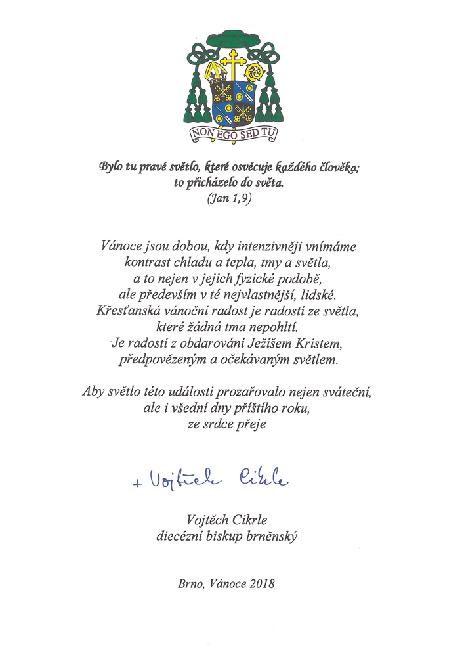 NON EGO SED TU
Bylo tu pravé světlo, které osvěcuje každého člověka;
to přicházelo do světa.
(Jan 1,9)
Vánoce jsou dobou, kdy intenzivněji vnímáme
kontrast chladu a tepla, tmy a světla,
a to nejen v jejich fyzické podobě,
ale především v té nejvlastnější, lidské.
Křesťanská vánoční radost je radostí ze světla,
které žádná tma nepohltí.
Je radostí z obdarování Ježíšem Kristem,
předpovězeným a očekávaným světlem.
Aby světlo této události prozařovalo nejen sváteční,
ale i všední dny příštího roku,
ze srdce přeje
+ Vojtěch Cikrle
Vojtěch Cikrle
diecézní biskup brněnský
Brno, Vánoce 2018